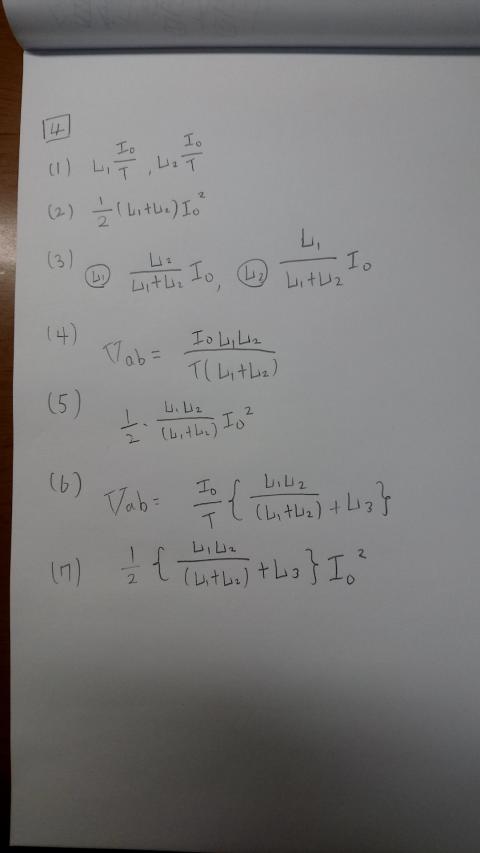 4
(1) L₁ I₀/T , L₂ I₀/T
(2) 1/2 (L₁+L₂) I₀²
(3) (L₁) L₂/(L₁+L₂) I₀, (L₂) L₁/(L₁+L₂) I₀
(4) Vab = I₀L₁L₂/T(L₁+L₂)
(5) 1/2 · L₁L₂/(L₁+L₂) I₀²
(6) Vab = I₀/T { L₁L₂/(L₁+L₂) + L₃ }
(7) 1/2 { L₁L₂/(L₁+L₂) + L₃ } I₀²